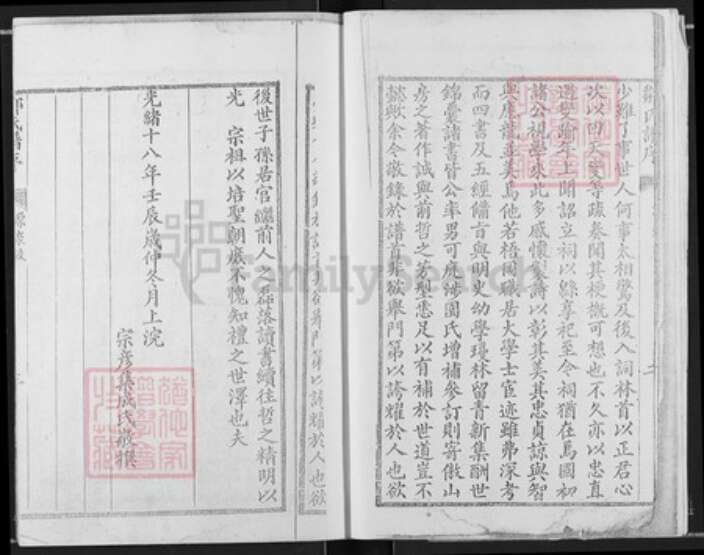 鄒氏譜序
少難了事世人何事太相驚及後入詞林首以正君心
次以回天變等疏參閱其梗概可想也不久亦以忠直
遭變踰年上聞詔立祠以綠享祀至今祠猶在焉國初
諸公視學來此多感懷製詩以彰其美其忠貞諒與智
與摩龍並美焉他若梧岡職居大學士宦迹雖弗深考
而四書及五經備言與明史幼學瓊林留青新集酬世
錦囊諸書皆公率男可庭涉園氏增補參訂則寄傲山
房之著作誠與前哲之芳型悉足以有補於世道豈不
懿歟余今敬錄於譜首非欲舉門第以誇耀於人也欲
後世子孫居官繼前人之磊落讀書續往哲之精明以
光 宗祖以培聖朝庶不愧知禮之世澤也夫
光緒十八年壬辰歲仲冬月上浣
宗彥集成氏敬撰
FamilySearch